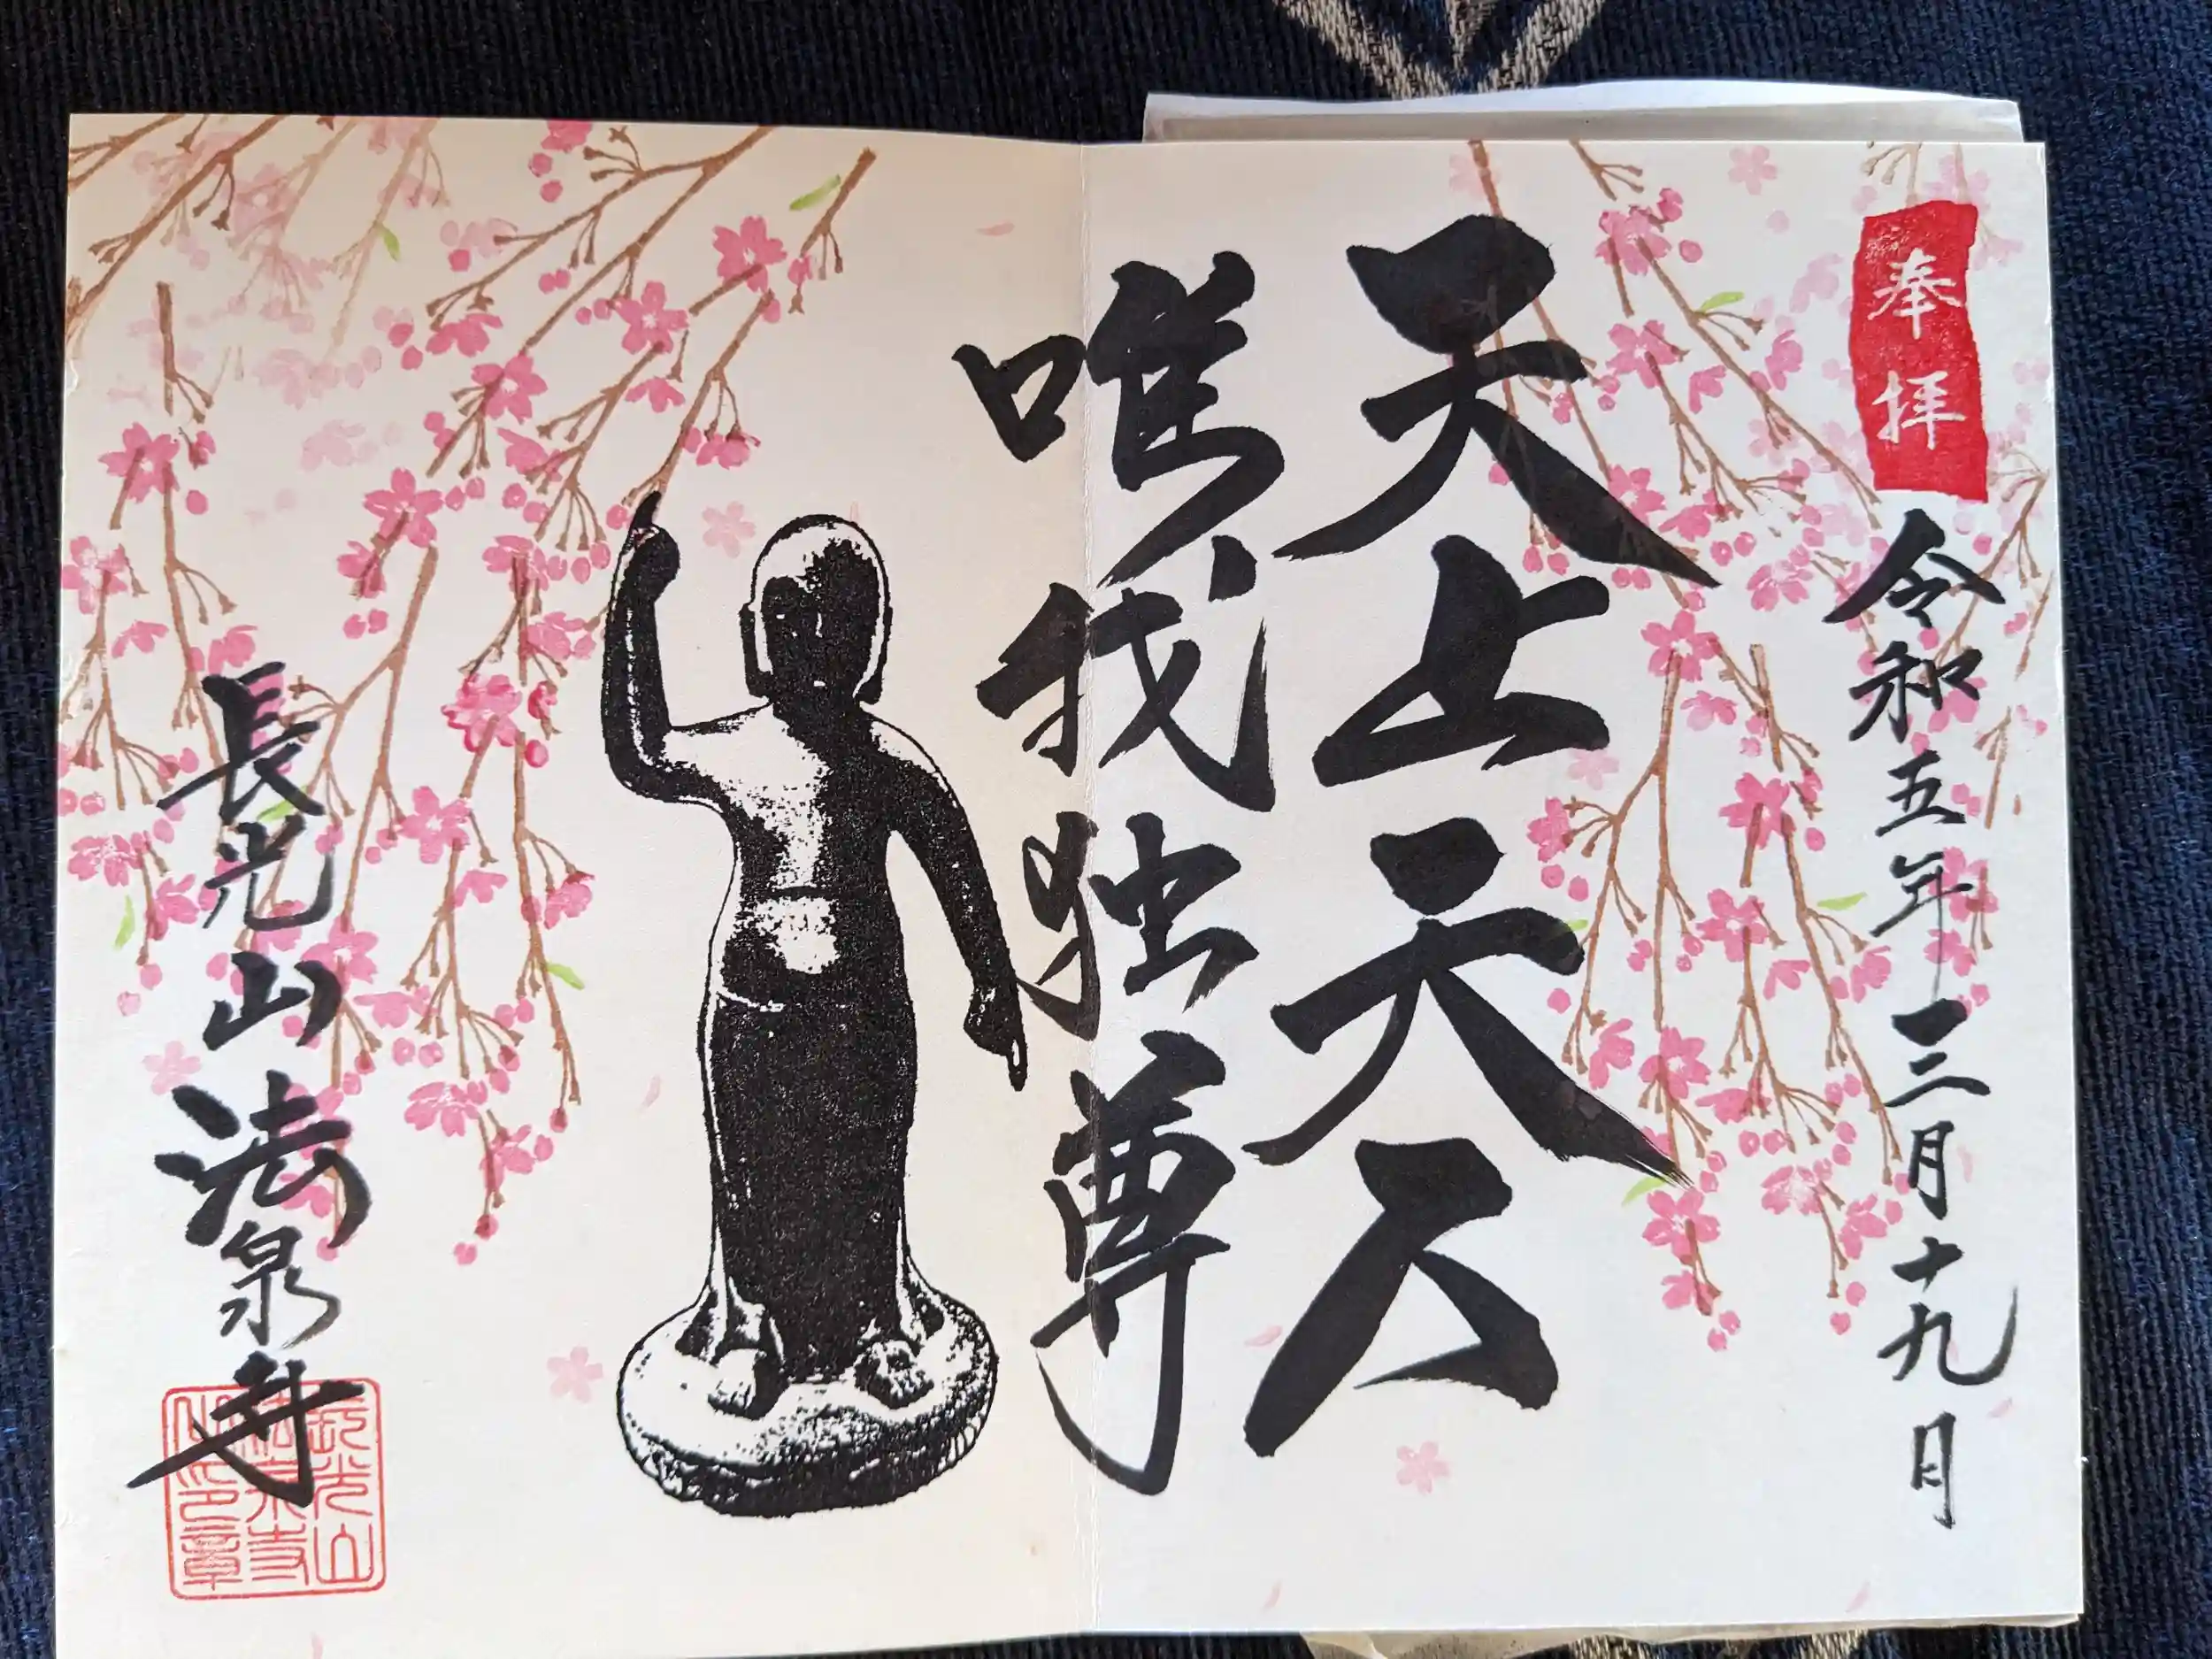 奉拝
令和五年三月十九日
天上天下
唯我独尊
長光山法泉寺
長光山
法泉寺
印章